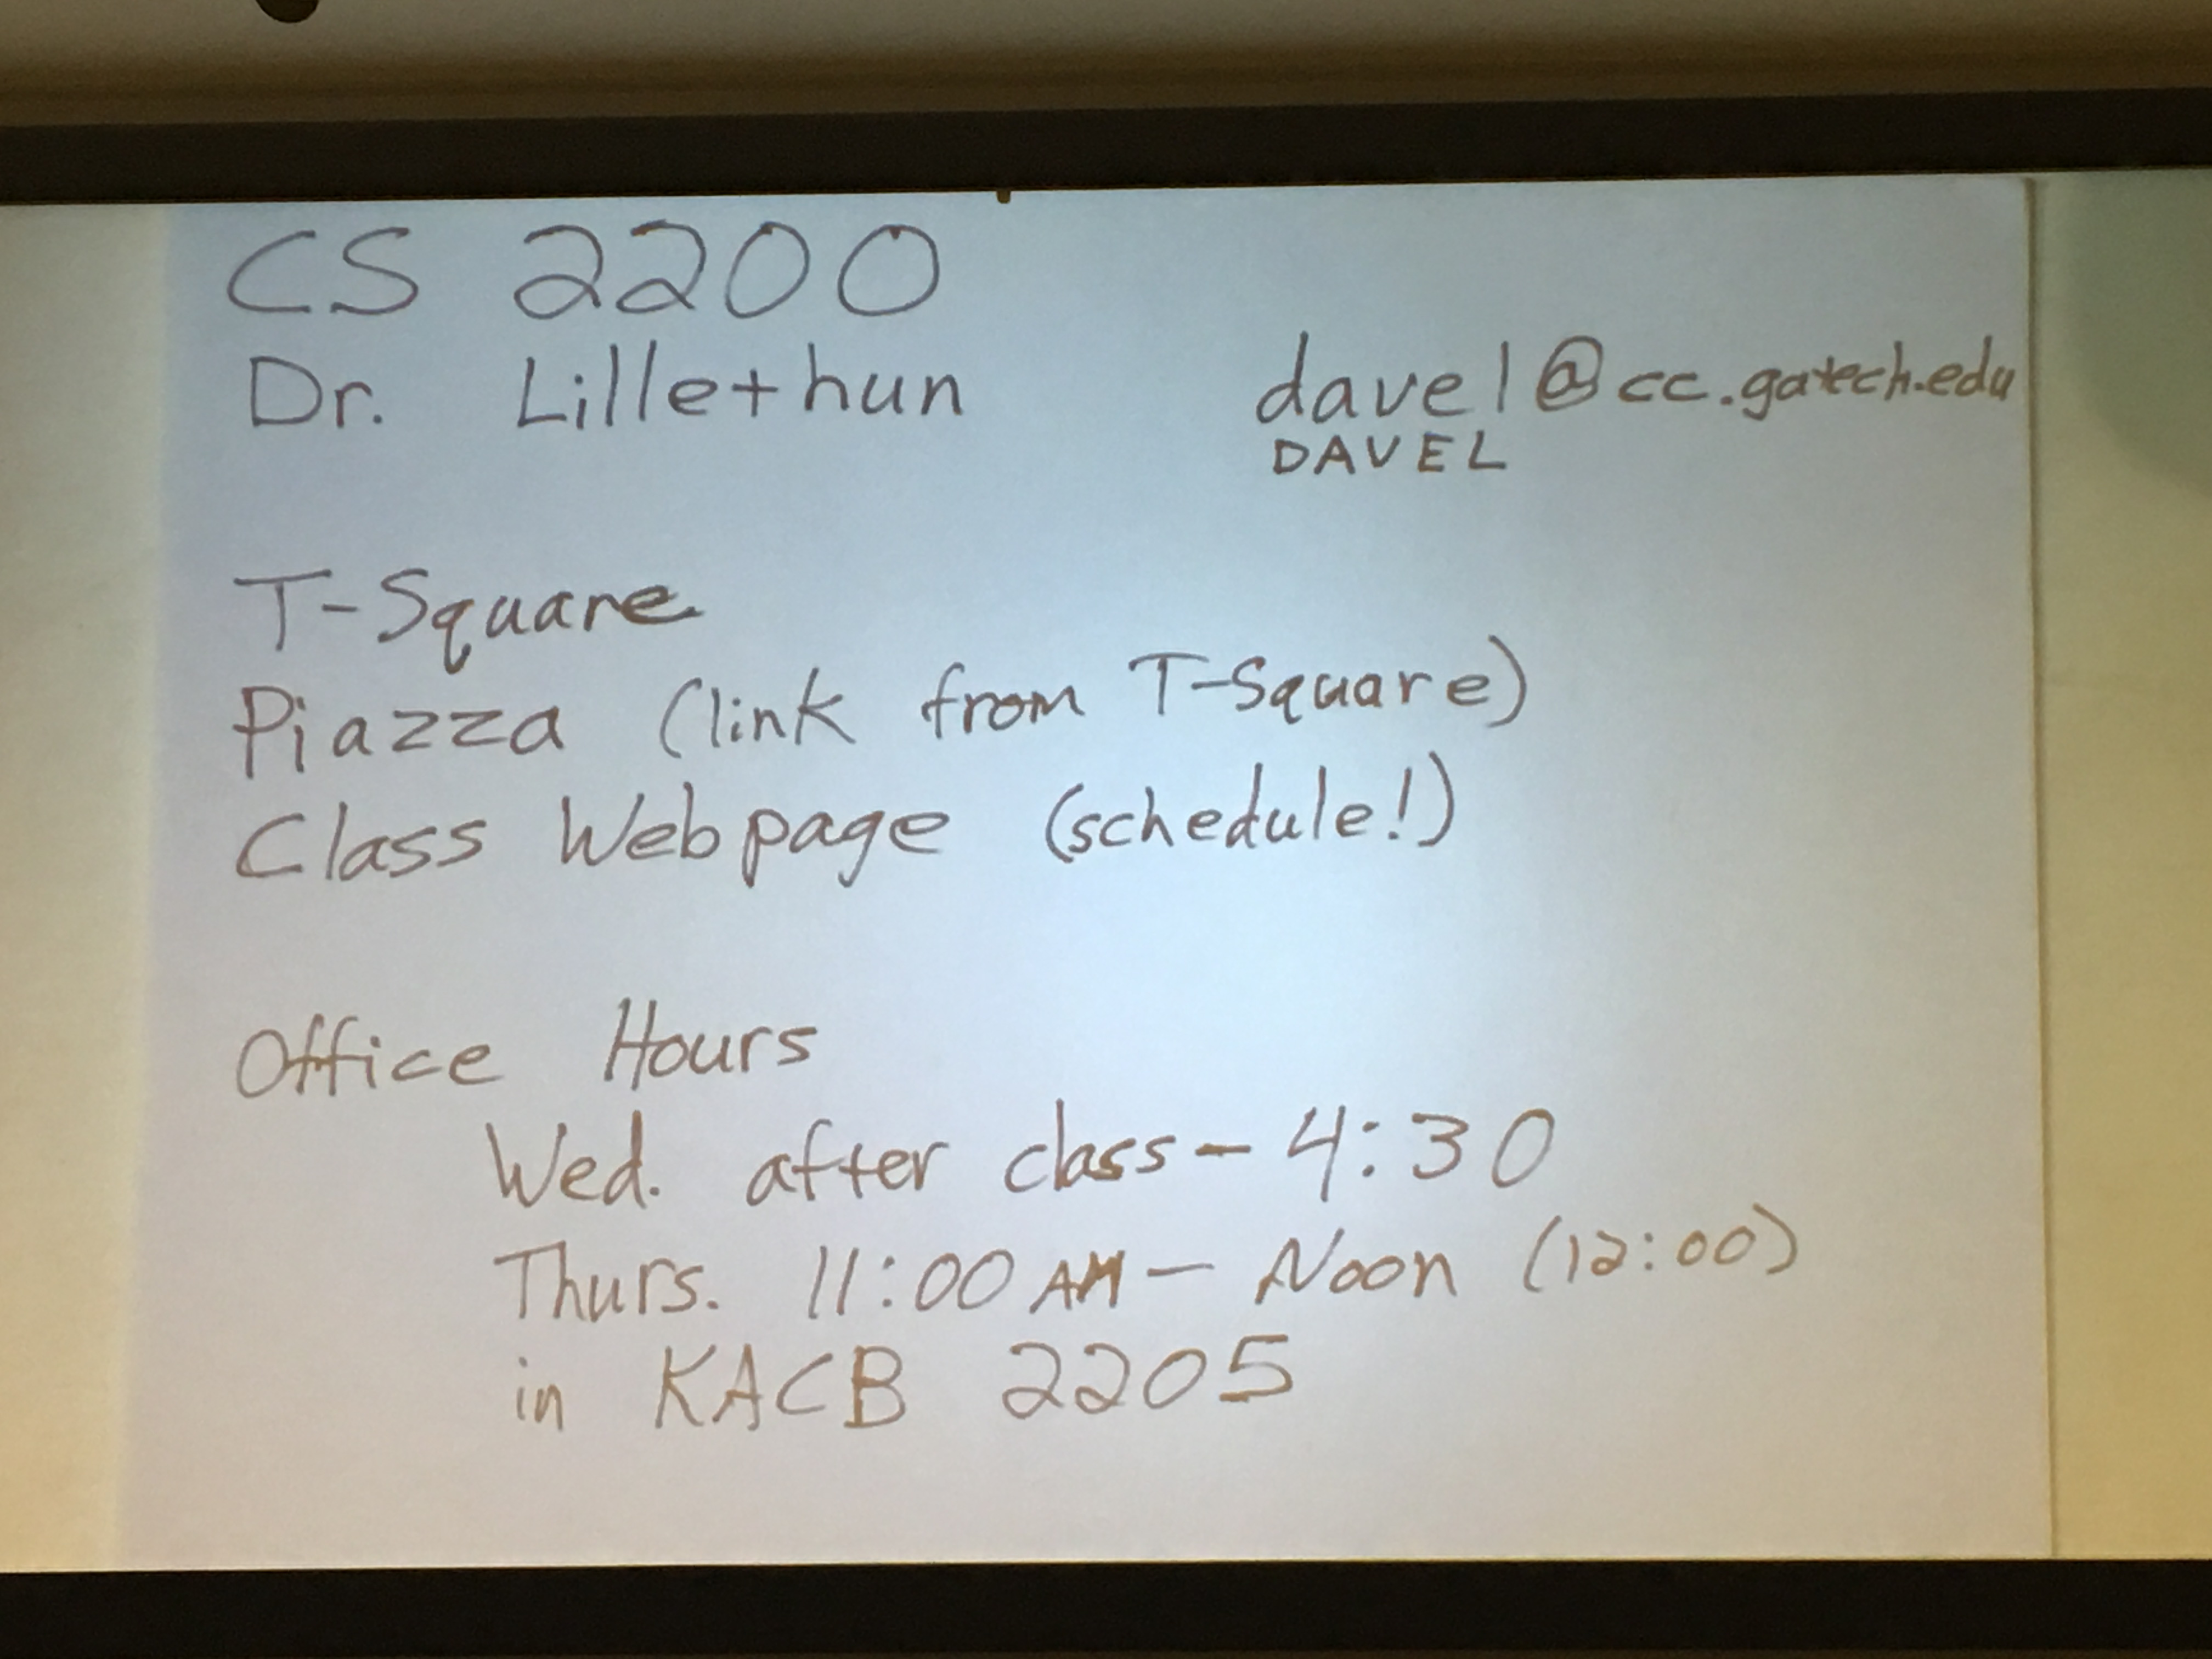 CS 2200
Dr. Lillethun davel@cc.gatech.edu
DAVEL
T-Square
Piazza (link from T-Square)
Class Webpage (schedule!)
Office Hours
Wed. after class - 4:30
Thurs. 11:00 AM - Noon (12:00)
in KACB 2205